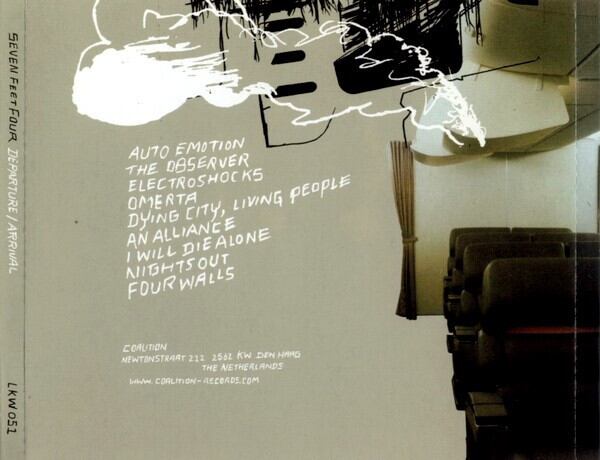 SEVEN FEET FOUR DEPARTURE / ARRIVAL
LKW 051
AUTO EMOTION
THE OBSERVER
ELECTROSHOCKS
OMERTA
DYING CITY, LIVING PEOPLE
AN ALLIANCE
I WILL DIE ALONE
NIGHTS OUT
FOUR WALLS
COALITION
NEWTONSTRAAT 212 2562 KW DEN HAAG
THE NETHERLANDS
WWW.COALITION-RECORDS.COM